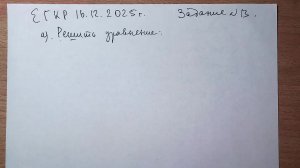 ЕГКР 16.12.2025г. Задание №13.
а). Решите уравнение: